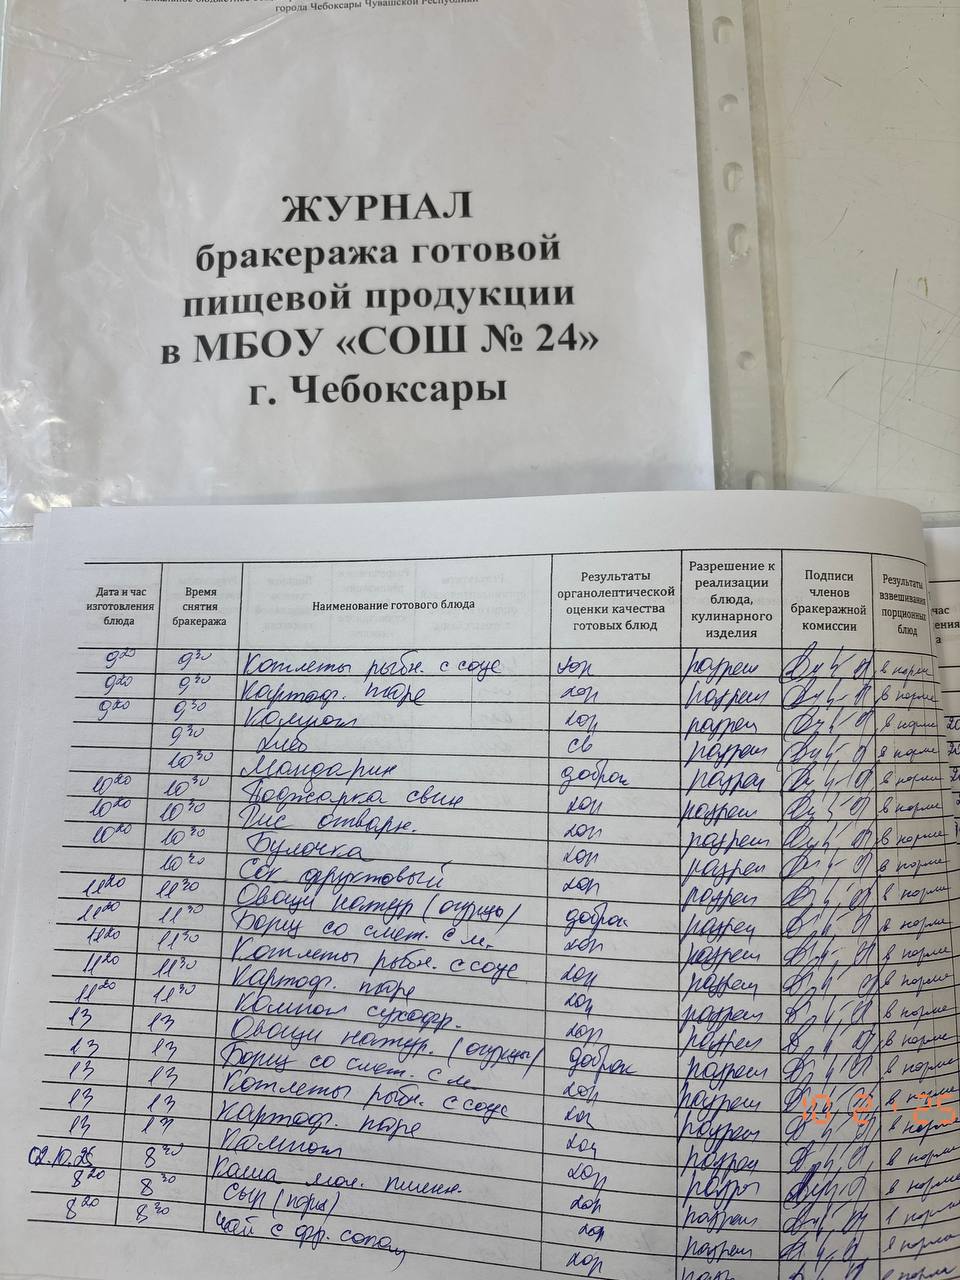 города Чебоксары Чувашской Республики
ЖУРНАЛ
бракеража готовой
пищевой продукции
в МБОУ «СОШ № 24»
г. Чебоксары
Дата и час изготовления блюда Время снятия бракеража Наименование готового блюда Результаты органолептической оценки качества готовых блюд Разрешение к реализации блюда, кулинарного изделия Подписи членов бракеражной комиссии Результаты взвешивания порционных блюд
9 20 9 30 Котлеты рыбн. с соус хор разреш в норме
9 20 9 30 Картоф. пюре хор разреш в норме
9 20 9 30 Компот хор разреш в норме
9 30 Хлеб св разреш в норме
10 30 Мандарин доброк разреш в норме
10 20 10 30 Поджарка свин хор разреш в норме
10 20 10 30 Рис отварн. хор разреш в норме
10 20 10 30 Булочка хор разреш в норме
10 30 Сок фруктовый хор разреш в норме
11 20 11 30 Овощи натур (огурцы) доброк разреш в норме
11 20 11 30 Борщ со смет. с м. хор разреш в норме
11 20 11 30 Котлеты рыбн. с соус хор разреш в норме
11 20 11 30 Картоф. пюре хор разреш в норме
11 20 11 30 Компот сухофр. хор разреш в норме
13 13 Овощи натур. (огурцы) доброк разреш в норме
13 13 Борщ со смет. с м. хор разреш в норме
13 13 Котлеты рыбн. с соус хор разреш в норме
13 13 Картоф. пюре хор разреш в норме
13 13 Компот хор разреш в норме
02.10.25 8 30 Каша мол. пшенн. хор разреш в норме
8 20 8 30 Сыр (порц) хор разреш в норме
8 20 8 30 Чай с фр. соком хор
10 2 '25